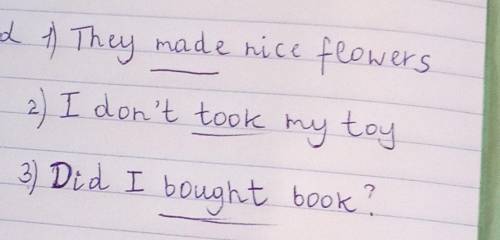 d 1) They made nice flowers
2) I don't took my toy
3) Did I bought book?